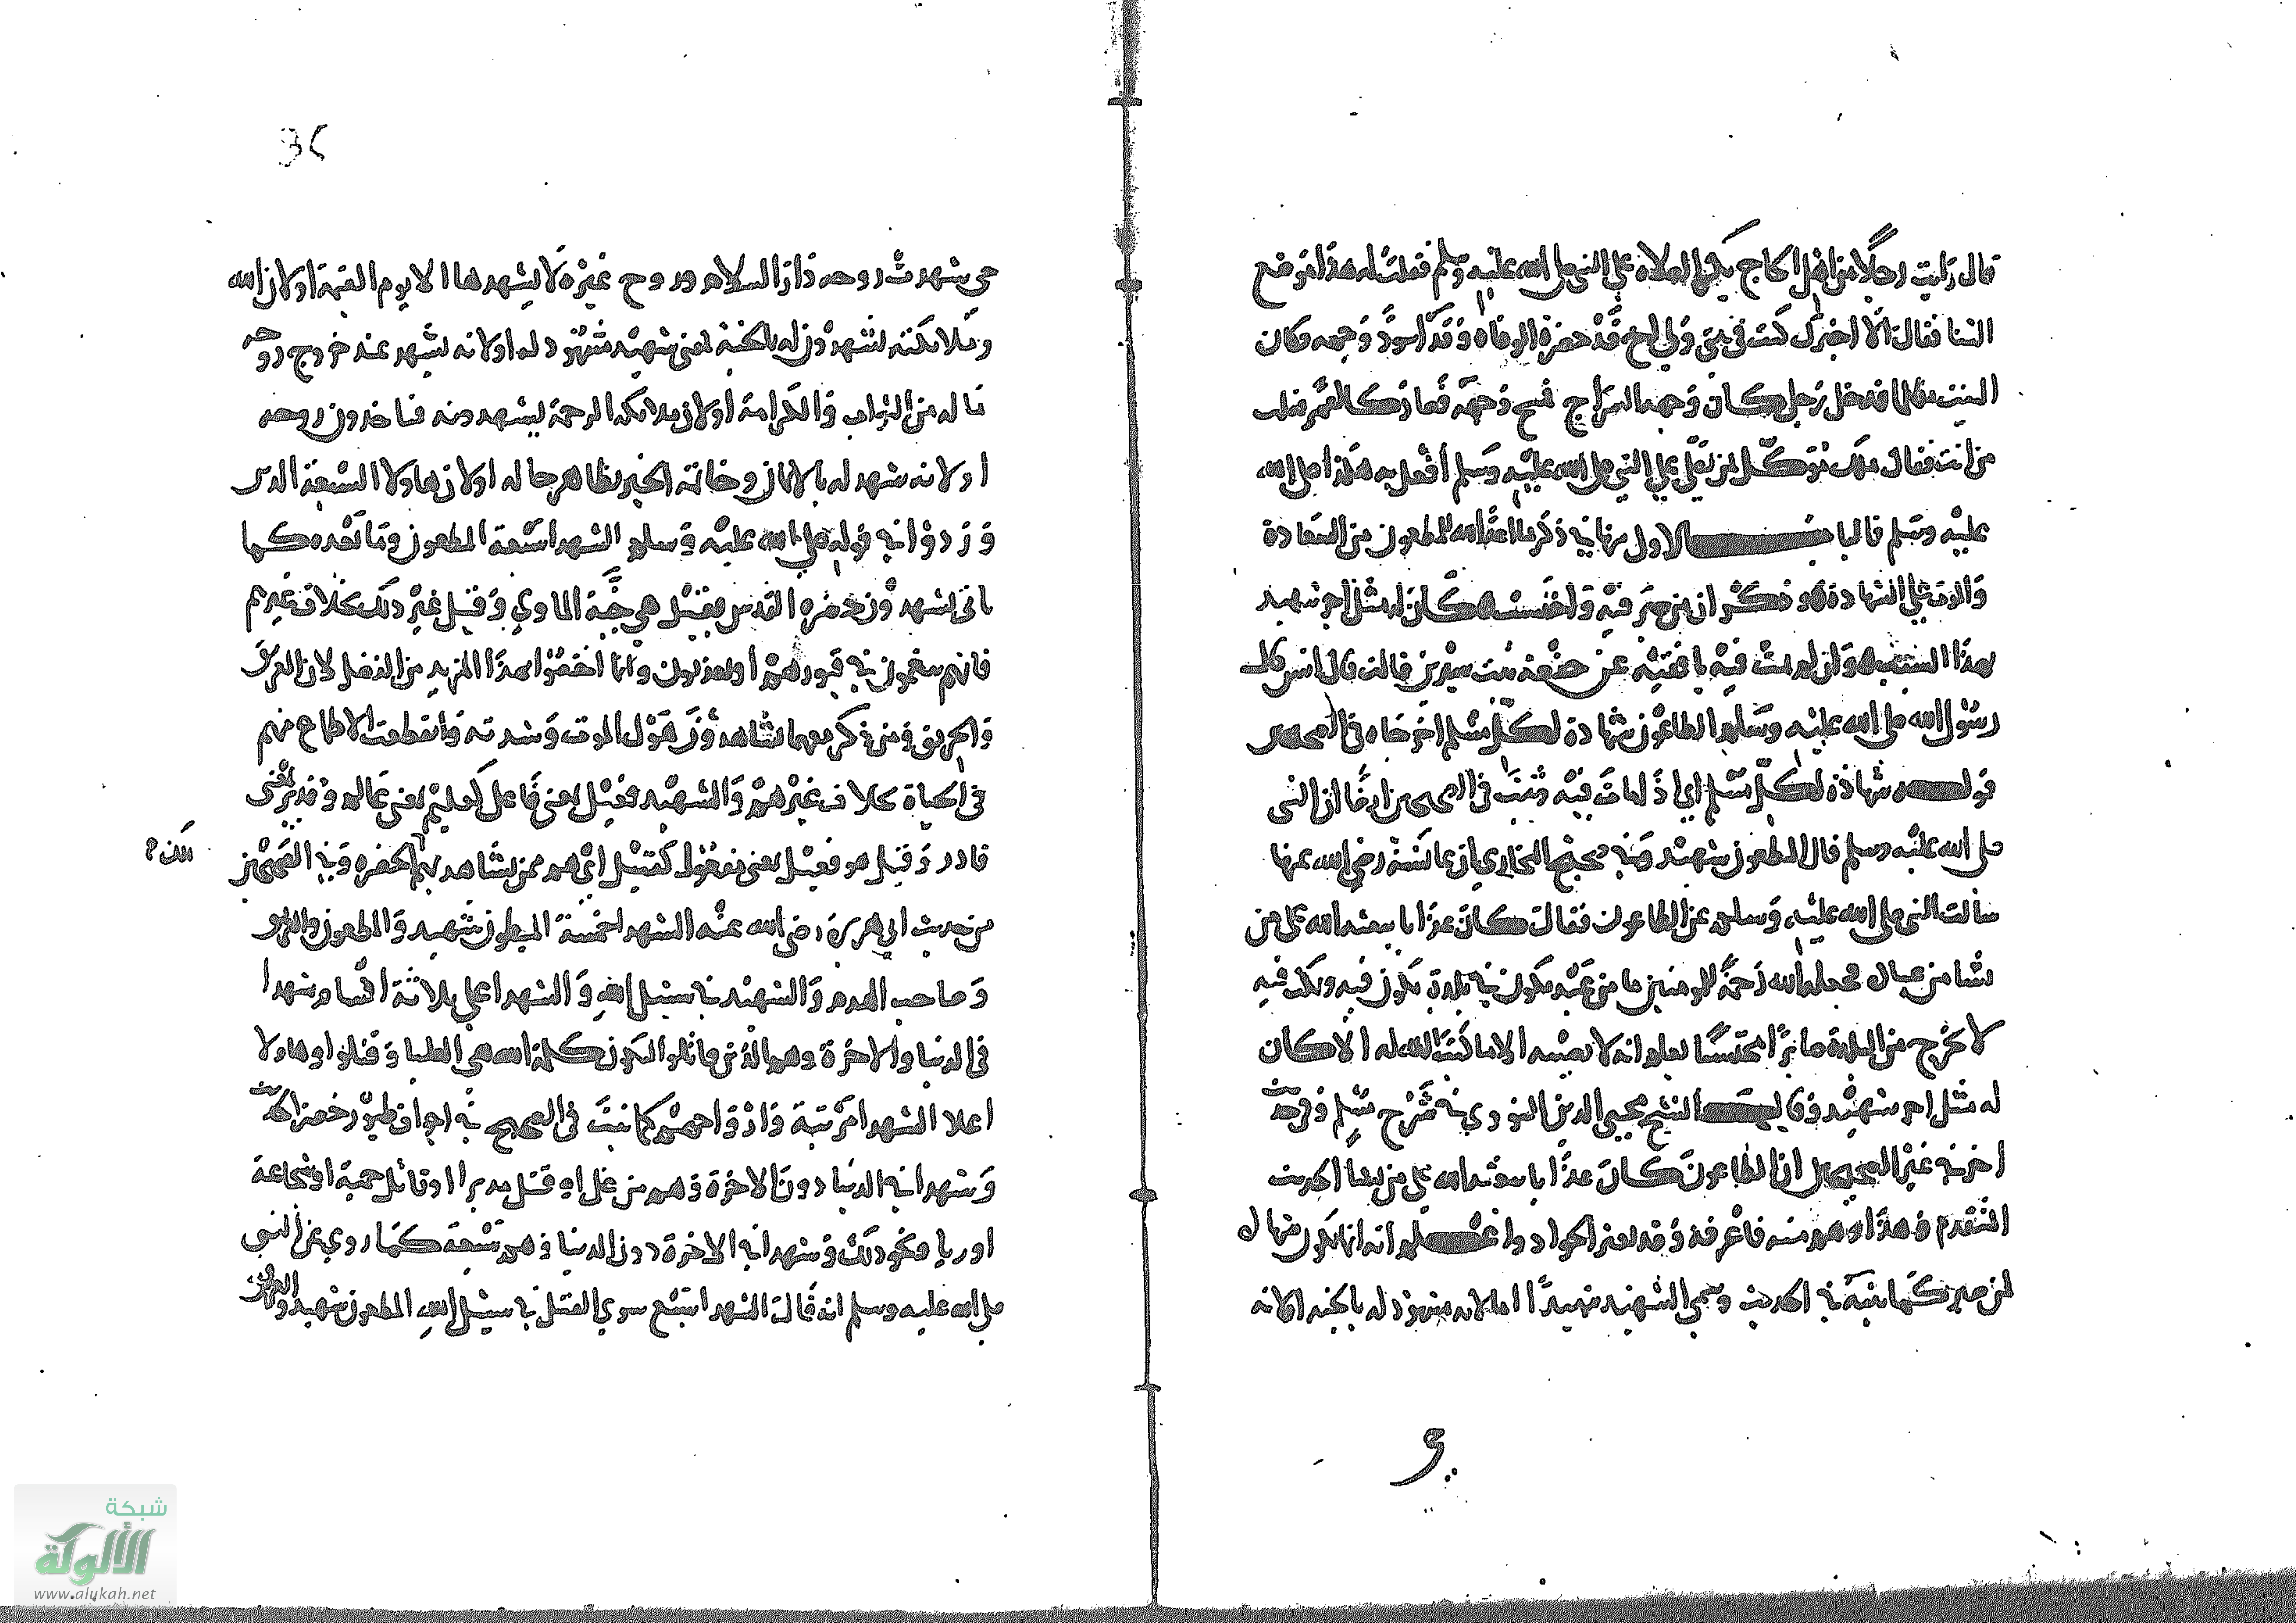 قال رايت رجلا من اهل الحاج يكثر الصلاه على النبي صلى الله عليه وسلم فقلت له هذا موضع
الثنا فقال الا اخبرك كنت في بيتي ولي اخ قد حضرته الوفاه وقد اسود وجهه وكان
البيت مظلما فدخل رجل كان وجهه السراج فمسح وجهه فصار كالقمر فقلت
من انت فقال ملك موكل لمن يصلي على النبي صلى الله عليه وسلم افعل به هكذا صلى الله
عليه وسلم قال الباب الاول من ذكر ما اعد الله للمطعون من السعادة
والموت على الشهادة وذكر ان من صبر فيه واحتسب كان له مثل اجر شهيد
وان لم يمت فيه عن حفصة بنت سيرين قالت قال انس قال
رسول الله صلى الله عليه وسلم الطاعون شهادة لكل مسلم اخرجاه في الصحيحين
قوله شهادة لكل مسلم اي اذا مات فيه وثبت في الصحيحين ايضا ان النبي
صلى الله عليه وسلم قال المطعون شهيد وفي صحيح البخاري ان عائشة رضي الله عنها
سالت النبي صلى الله عليه وسلم عن الطاعون فقال كان عذابا يبعثه الله على من
يشا من عباده فجعله الله رحمة للمومنين ما من عبد يكون في بلدة يكون فيه ويمكث فيه
لا يخرج من البلدة صابرا محتسبا يعلم انه لا يصيبه الا ما كتب الله له الا كان
له مثل اجر شهيد وقال الشيخ محيي الدين النووي في شرح مسلم وفي حديث
اخر في غير الصحيحين ان الطاعون كان عذابا يبعثه الله على من يشا الحديث
المتقدم وهذا منه فاعرفه واعلم انه انما يكون شهادة
لمن صبر كما بينه في الحديث وسمي الشهيد شهيدا اما لانه مشهود له بالجنه
36
حي شهدت روحه دار السلام وروح غيره لا يشهدها الا يوم القيمة او لان الله
وملائكته يشهدون له بالجنة فمعنى شهيد مشهود له او لانه يشهد عند خروج روحه
ما له من الثواب والكرامة او لان ملائكة الرحمة يشهدونه فياخذون روحه
او لانه شهد له بالايمان وخاتمة الخير بظاهر حاله او لان هاولا السبعة الذين
وردوا في قوله صلى الله عليه وسلم الشهدا سبعة المطعون وما بعده كما
ياتي يشهدون حضرة القدس فقيل هي جنة الماوي وقيل غير ذلك بخلاف غيرهم
فانهم في قبورهم وانما اختصوا بهذا المزيد من الفضل لان الغريق
والحريق ومن ذكر معهما يشاهدون هول الموت وشدته وانقطعت الاطماع منهم
في الحياة بخلاف غيرهم والشهيد فعيل بمعنى فاعل كعليم بمعنى عالم وقدير بمعنى
قادر وقيل هو فعيل بمعنى مفعول كقتيل اي هو ممن يشاهد الحضره وفي الصحيحين
من حديث ابي هريرة رضي الله عنه الشهدا خمسة المبطون شهيد والمطعون
وصاحب الهدم والشهيد في سبيل الله والشهدا على ثلاثة اقسام شهدا
في الدنيا والاخرة وهم الذين قاتلوا لتكون كلمة الله هي العليا وقتلوا وهاولا
اعلا الشهدا مرتبة وارواحهم كما ثبت في الصحيح في اجواف طيور خضر الحديث
وشهدا في الدنيا دون الاخرة وهم من غل او قتل مدبرا او قاتل حمية او شجاعة
او ريا ونحو ذلك وشهدا في الاخرة دون الدنيا وهم سبعة كما روي عن النبي
صلى الله عليه وسلم انه قال الشهدا سبع سوي القتل في سبيل الله المطعون شهيد والغرق
شبكة
الألوكة
www.alukah.net